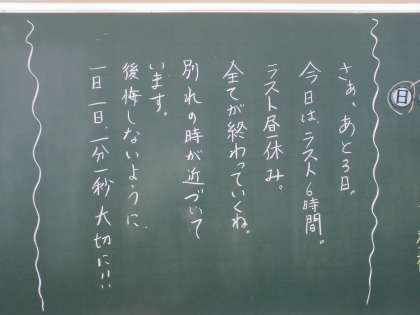 さぁ、あと3日。
今日はラスト6時間。
ラスト昼休み。
全てが終わっていくね。
別れの時が近づいて
います。
後悔しないように、
一日一日、一分一秒 大切に!!
日